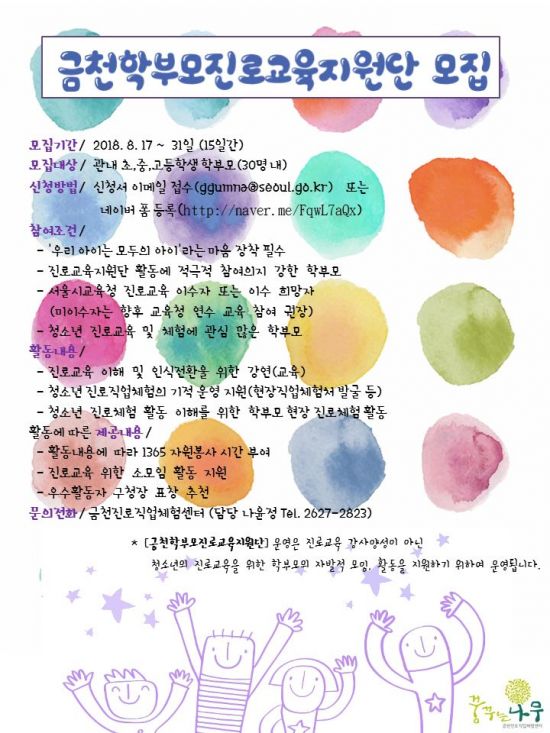 금천학부모진로교육지원단 모집
모집기간 / 2018. 8. 17 ~ 31일 (15일간)
모집대상 / 관내 초,중,고등학생 학부모(30명 내)
신청방법 / 신청서 이메일 접수(ggumna@seoul.go.kr) 또는
네이버 폼 등록(http://naver.me/FqwL7aQx)
참여조건 /
- '우리 아이는 모두의 아이'라는 마음 장착 필수
- 진로교육지원단 활동에 적극적 참여의지 강한 학부모
- 서울시교육청 진로교육 이수자 또는 이수 희망자
(미이수자는 향후 교육청 연수 교육 참여 권장)
- 청소년 진로교육 및 체험에 관심 많은 학부모
활동내용 /
- 진로교육 이해 및 인식전환을 위한 강연(교육)
- 청소년 진로직업체험의 기적 운영 지원(현장직업체험처 발굴 등)
- 청소년 진로체험 활동 이해를 위한 학부모 현장 진로체험 활동
활동에 따른 제공내용 /
- 활동내용에 따라 1365 자원봉사 시간 부여
- 진로교육 위한 소모임 활동 지원
- 우수활동자 구청장 표창 추천
문의전화 / 금천진로직업체험센터 (담당 나윤정 Tel. 2627-2823)
* [금천학부모진로교육지원단] 운영은 진로교육 강사양성이 아닌
청소년의 진로교육을 위한 학부모의 자발적 모임, 활동을 지원하기 위하여 운영됩니다.
꿈꾸는 나무
금천진로직업체험센터